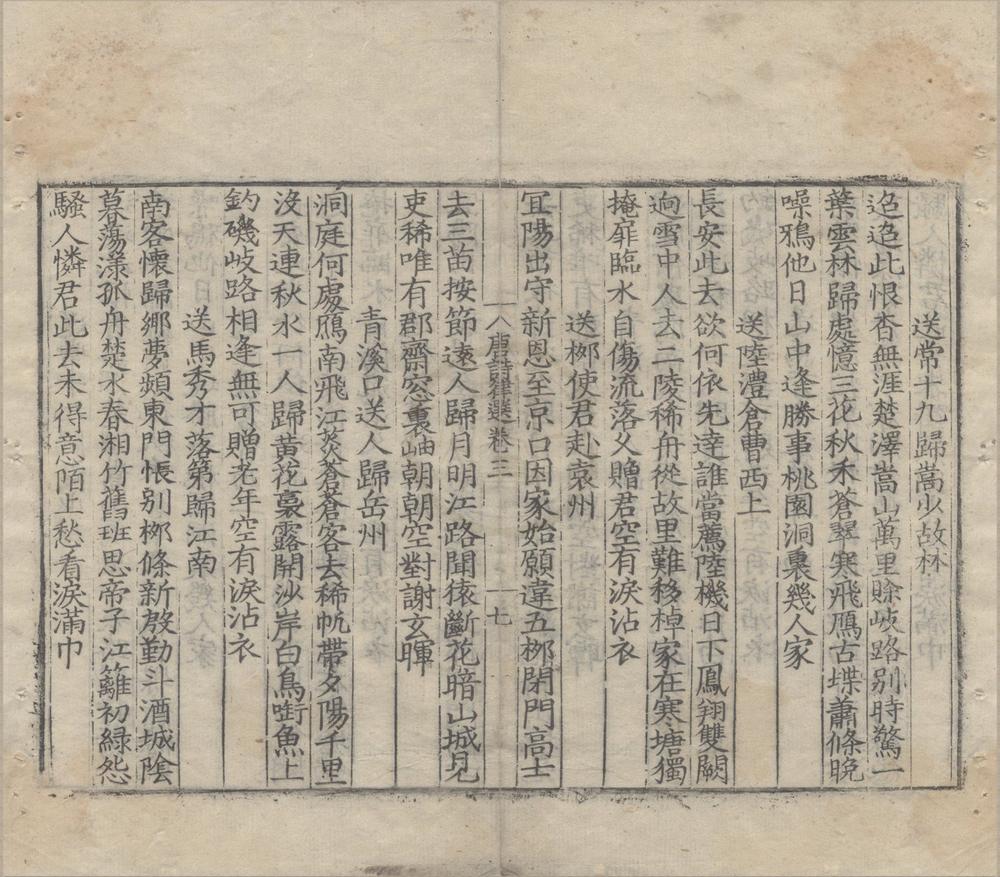 送常十九歸嵩少故林
迢迢此恨杳無涯楚澤嵩山萬里賒岐路别時驚一
葉雲林歸處憶三花秋禾蒼翠寒飛鴈古堞蕭條晚
噪鴉他日山中逢勝事桃園洞裏幾人家
送陸澧倉曹西上
長安此去欲何依先達誰當薦陸機日下鳳翔雙闕
逈雪中人去二陵稀舟從故里難移棹家在寒塘獨
掩扉臨水自傷流落久贈君空有淚沾衣
送栁使君赴袁州
冝陽出守新恩至京口因家始願違五栁閉門高士
唐詩律選卷三
十七
去三苗按節逺人歸月明江路聞猿斷花暗山城見
吏稀唯有郡齋窓裏岫朝朝空對謝玄暉
青溪口送人歸岳州
洞庭何處鴈南飛江菼蒼蒼客去稀帆帶夕陽千里
沒天連秋水一人歸黄花裛露開沙岸白鳥啣魚上
釣磯岐路相逢無可贈老年空有淚沾衣
送馬秀才落第歸江南
南客懷歸鄉夢頻東門悵别栁條新殷勤斗酒城陰
暮蕩漾孤舟楚水春湘竹舊班思帝子江籬初緑怨
騷人憐君此去未得意陌上愁看淚滿巾